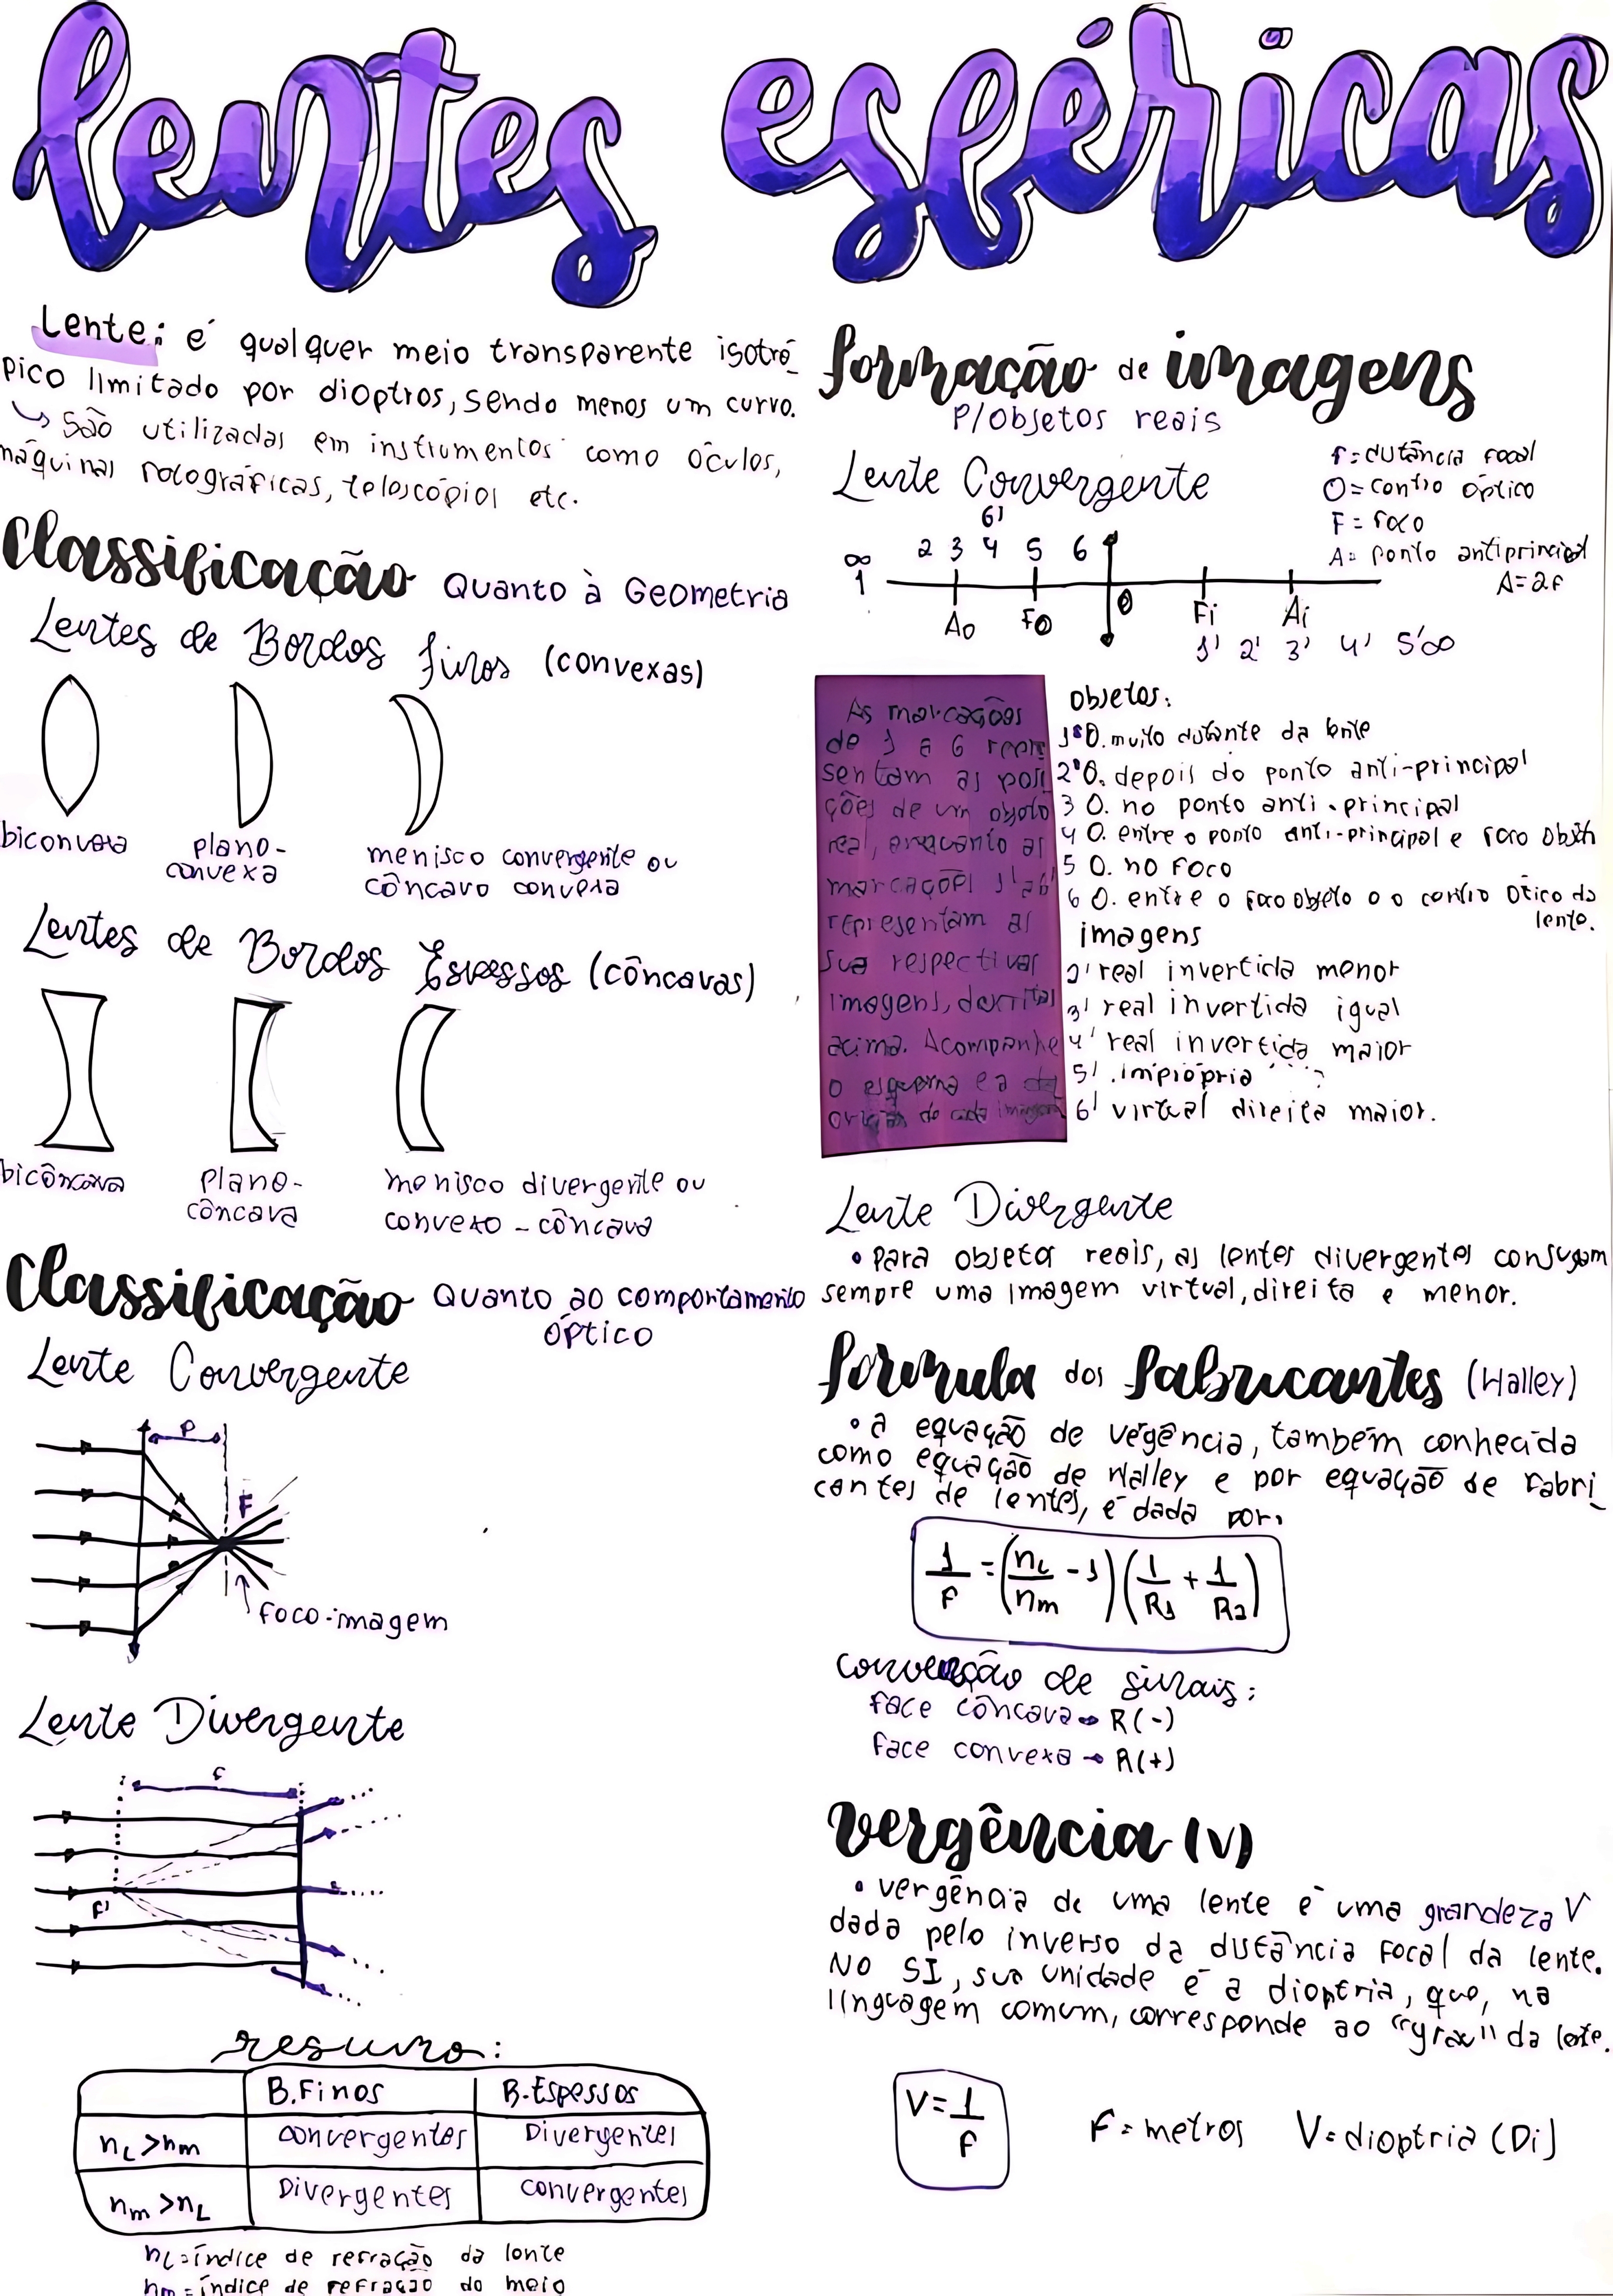 lentes esféricas
Lente: é qualquer meio transparente isotró
pico limitado por dioptros, sendo menos um curvo.
↳ São utilizadas em instrumentos como óculos,
máquinas fotográficas, telescópios etc.
Classificação Quanto à Geometria
Lentes de Bordos finos (convexas)
biconvexa
plano-
convexa
menisco convergente ou
côncavo convexa
Lentes de Bordos Espessos (côncavas)
bicôncava
plano-
côncava
menisco divergente ou
convexo - côncava
Classificação Quanto ao comportamento
óptico
Lente Convergente
P
F
foco-imagem
Lente Divergente
f
F'
resumo:
B.Finos B.Espessos
nL>nm convergentes Divergentes
nm>nL Divergentes convergentes
nL=índice de refração da lente
nm=índice de refração do meio
formação de imagens
P/objetos reais
Lente Convergente
f=distância focal
O=centro óptico
F=foco
A=ponto antiprincipal
A=2f
6'
∞ 2 3 4 5 6
1
Ao Fo O Fi Ai
1' 2' 3' 4' 5'∞
As marcações
de 1 a 6 repre
sentam as posi
ções de um objeto
real, enquanto as
marcações 1' a 6'
representam as
sua respectivas
imagens, descritas
acima. Acompanhe
o esquema e a da
origem de cada imagem
objetos:
1°O. muito distante da lente
2°O. depois do ponto anti-principal
3 O. no ponto anti-principal
4 O. entre o ponto anti-principal e foco objeto
5 O. no foco
6 O. entre o foco objeto e o centro ótico da
lente.
imagens
2' real invertida menor
3' real invertida igual
4' real invertida maior
5' .imprópria
6' virtual direita maior.
Lente Divergente
• para objetos reais, as lentes divergentes conjugam
sempre uma imagem virtual, direita e menor.
fórmula dos fabricantes (Halley)
• a equação de vêgência, também conhecida
como equação de Halley e por equação de fabri
cantes de lentes, é dada por:
1/f = (nL/nm - 1) (1/R1 + 1/R2)
convenção de sinais:
face côncava → R(-)
face convexa → R(+)
vergência (V)
• vergência de uma lente é uma grandeza V
dada pelo inverso da distância focal da lente.
NO SI, sua unidade é a dioptria, que, na
linguagem comum, corresponde ao "grau" da lente.
V=1/f
F=metros V=dioptria (Di)